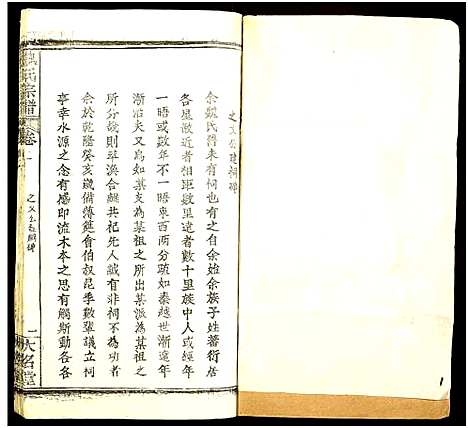 之文公建祠碑
余魏氏舊未有祠也有之自余始余族子姓蕃衍居
各星散近者相距數里遠者數十里族中人或經年
一晤或數年不一晤東西兩分疏如秦越世漸遠年
漸沿夫又烏知某支為某祖之所出某派為某祖之
所分哉則萃渙合離共祀先人誠有非祠不為功者
余於乾隆癸亥歲備薄筵會伯叔昆季數輩議立祠
亭幸水源之念有感即流木本之思有觸斯動各各
魏氏宗譜
卷一
之文公建祠碑
一
大名堂
1